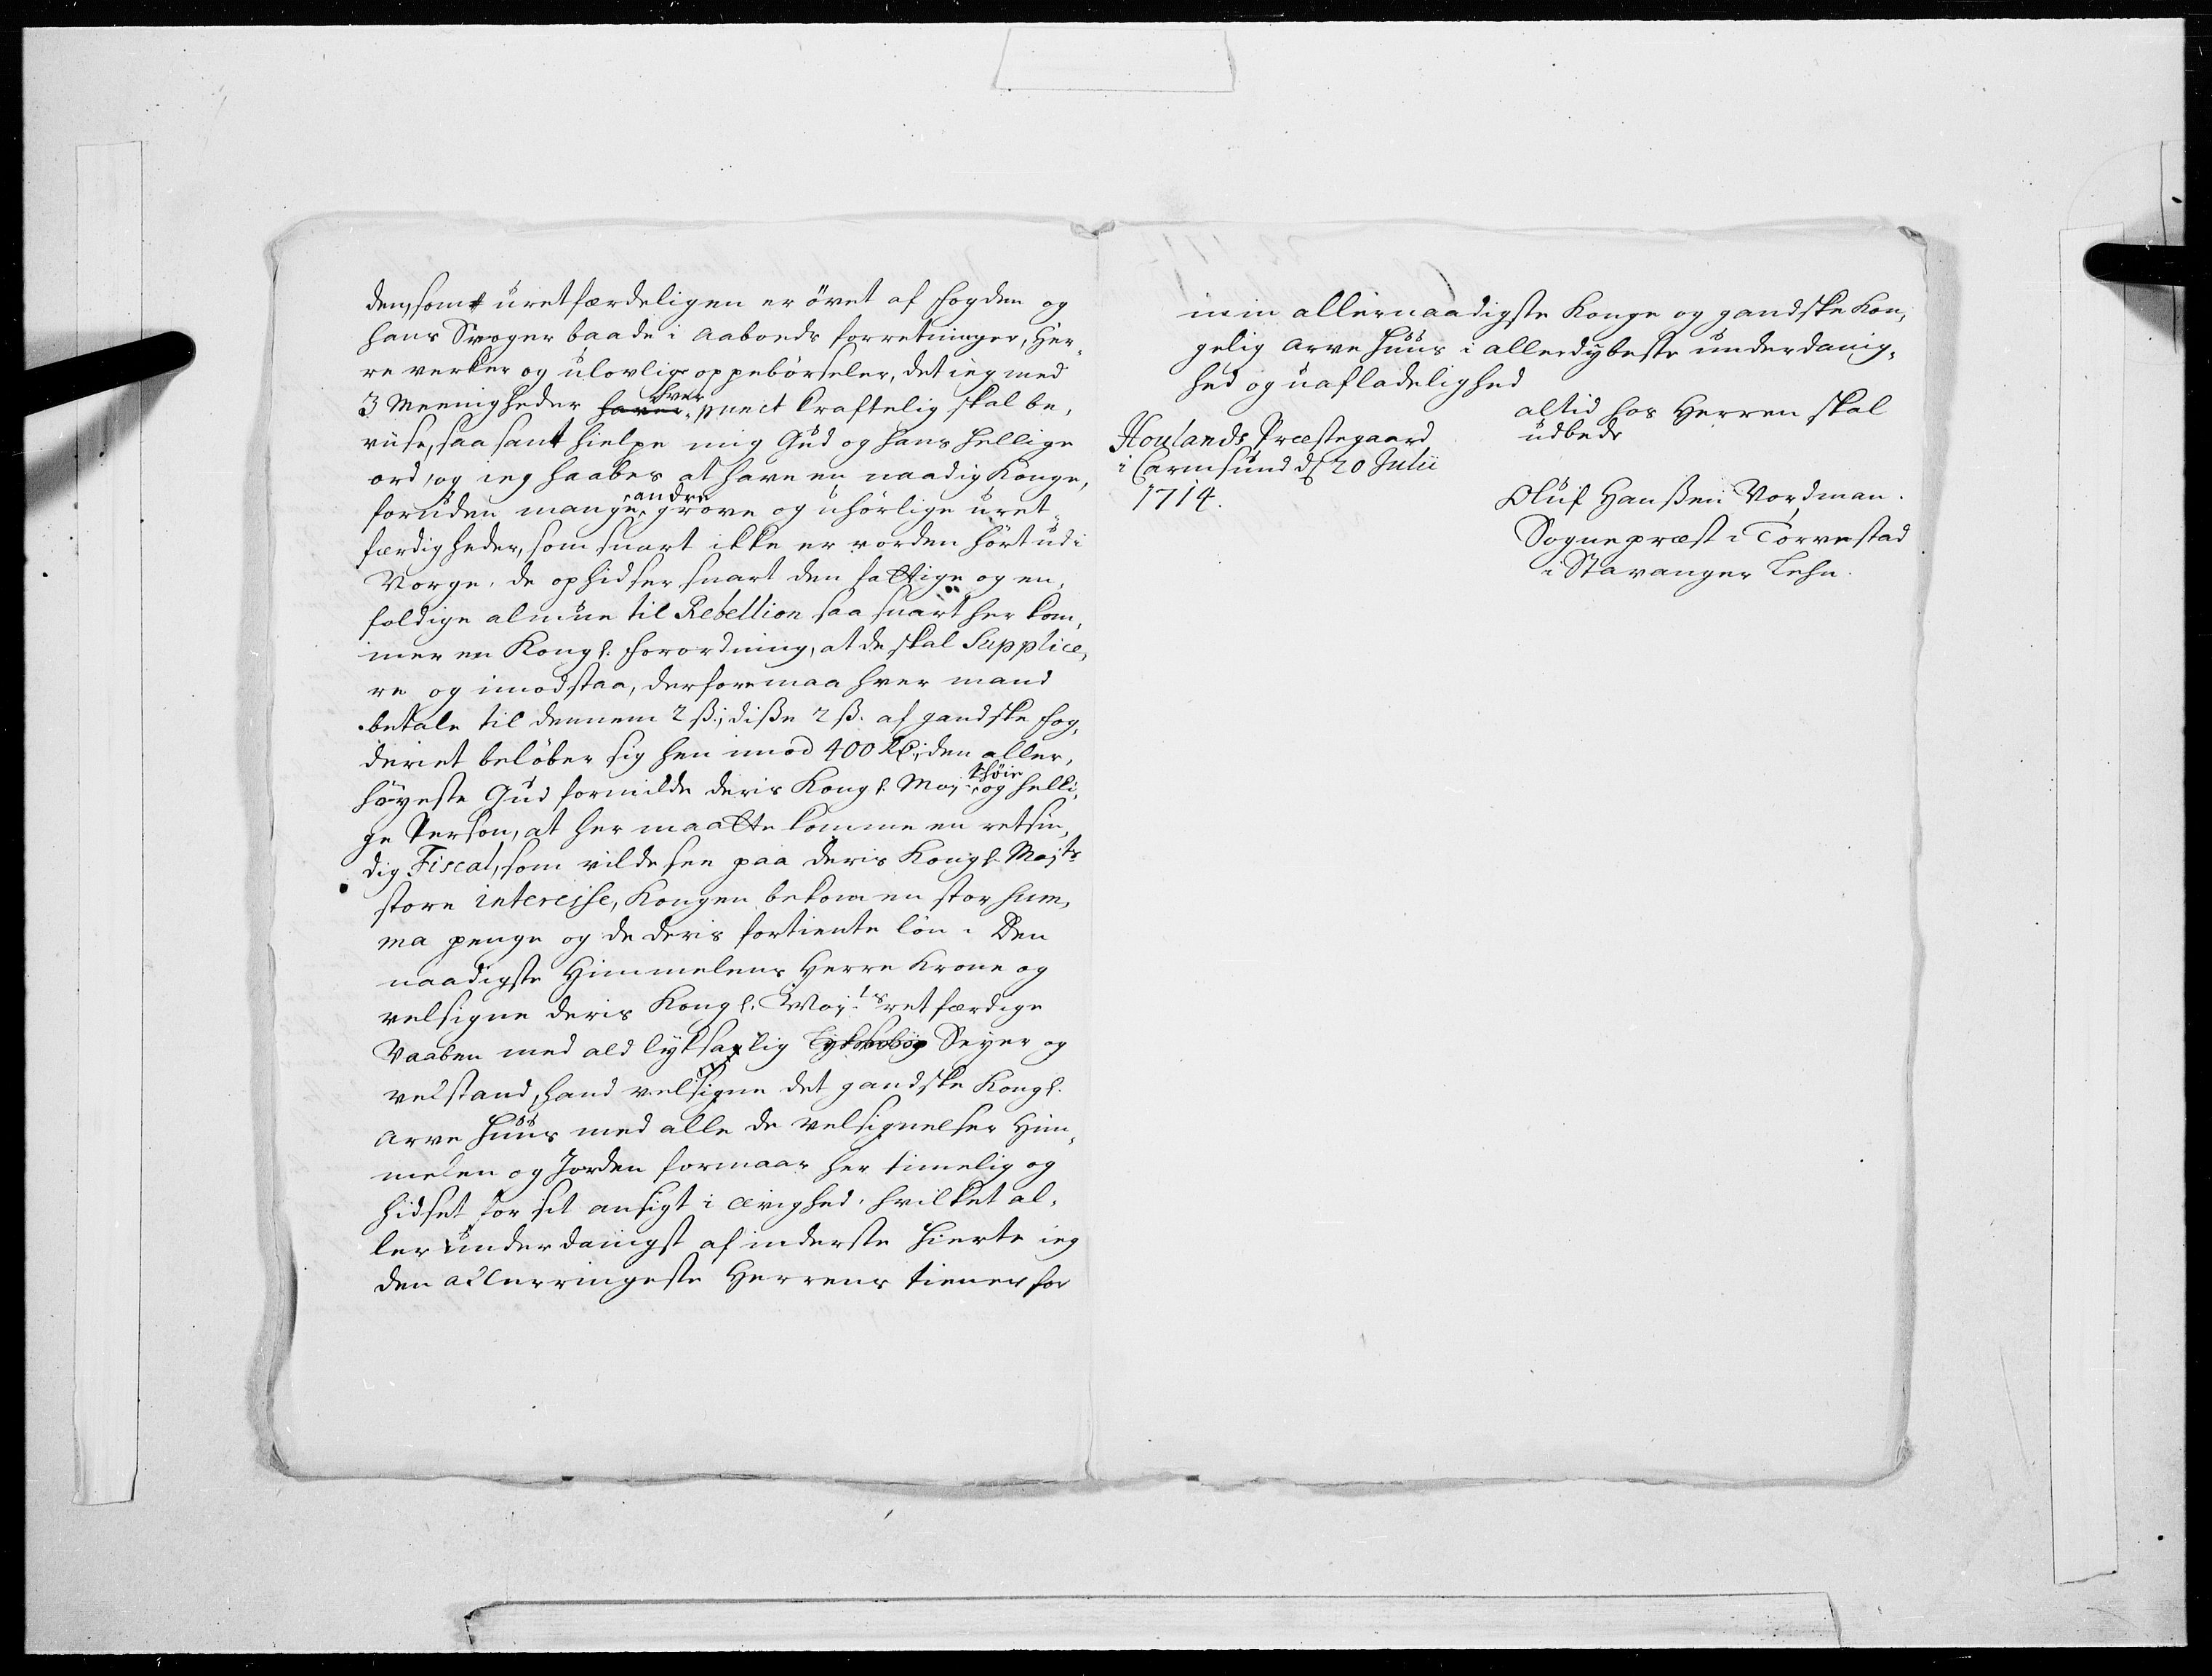 den, som uretfærdeligen er övet af fogden og
hans Svoger baade i aaboeds forretninger, Her¬
re verker og ulovlige oppebörseler, det ieg med
3 Meenigheder hver punct kraftelig skal be¬
viise, saa sant hielpe mig Gud og hans hellige
ord, og ieg haabes at have en naadig Konge,
foruden mange andre grove og uhörlige uret¬
færdigheder, som snart ikke er vorden hört udi
Norge. de ophidser snart den fattige og en¬
foldige almue til Rebellion saa snart her kom¬
mer en Kongl. forordning, at de skal Supplice¬
re og imodstaa, derfore maa hver mand
betale til dennem 2 ß; diße 2 ß. af gandske fog¬
deriet belöber sig hen imod 400 Rd; den aller¬
höyeste Gud formilde deris Kongl. Mayts höie og helli¬
ge Person, at her maatte komme en retsin¬
dig Fiscal, som vilde see paa deris Kongl. Mayts
store interesse, Kongen bekom en stor sum¬
ma penge og de deris fortiente lön. Den
naadigste Himmelens Herre krone og
velsigne deris Kongl. Mayts retfærdige
Vaaben med ald lyksalig Seyer og
velstand, hand velsigne det gandske Kongl.
arve Huus med alle de velsignelser Him¬
melen og Jorden formaar her timelig og
hidset for sit ansigt i ævighed. hvilket al¬
lerunderdanigst af inderste hierte ieg
den allerringeste Herrens tiener for
min allernaadigste Konge og gandske Kon¬
gelig arve Huus i allerdybeste underdanig¬
hed og uafladelighed
altid hos Herren skal
udbede
Houlands Præstegaard
i Carmsund d 20 Julii
1714.
Oluf Hanßen Nordman.
Sognepræst i Torvestad
i Stavanger Lehn.